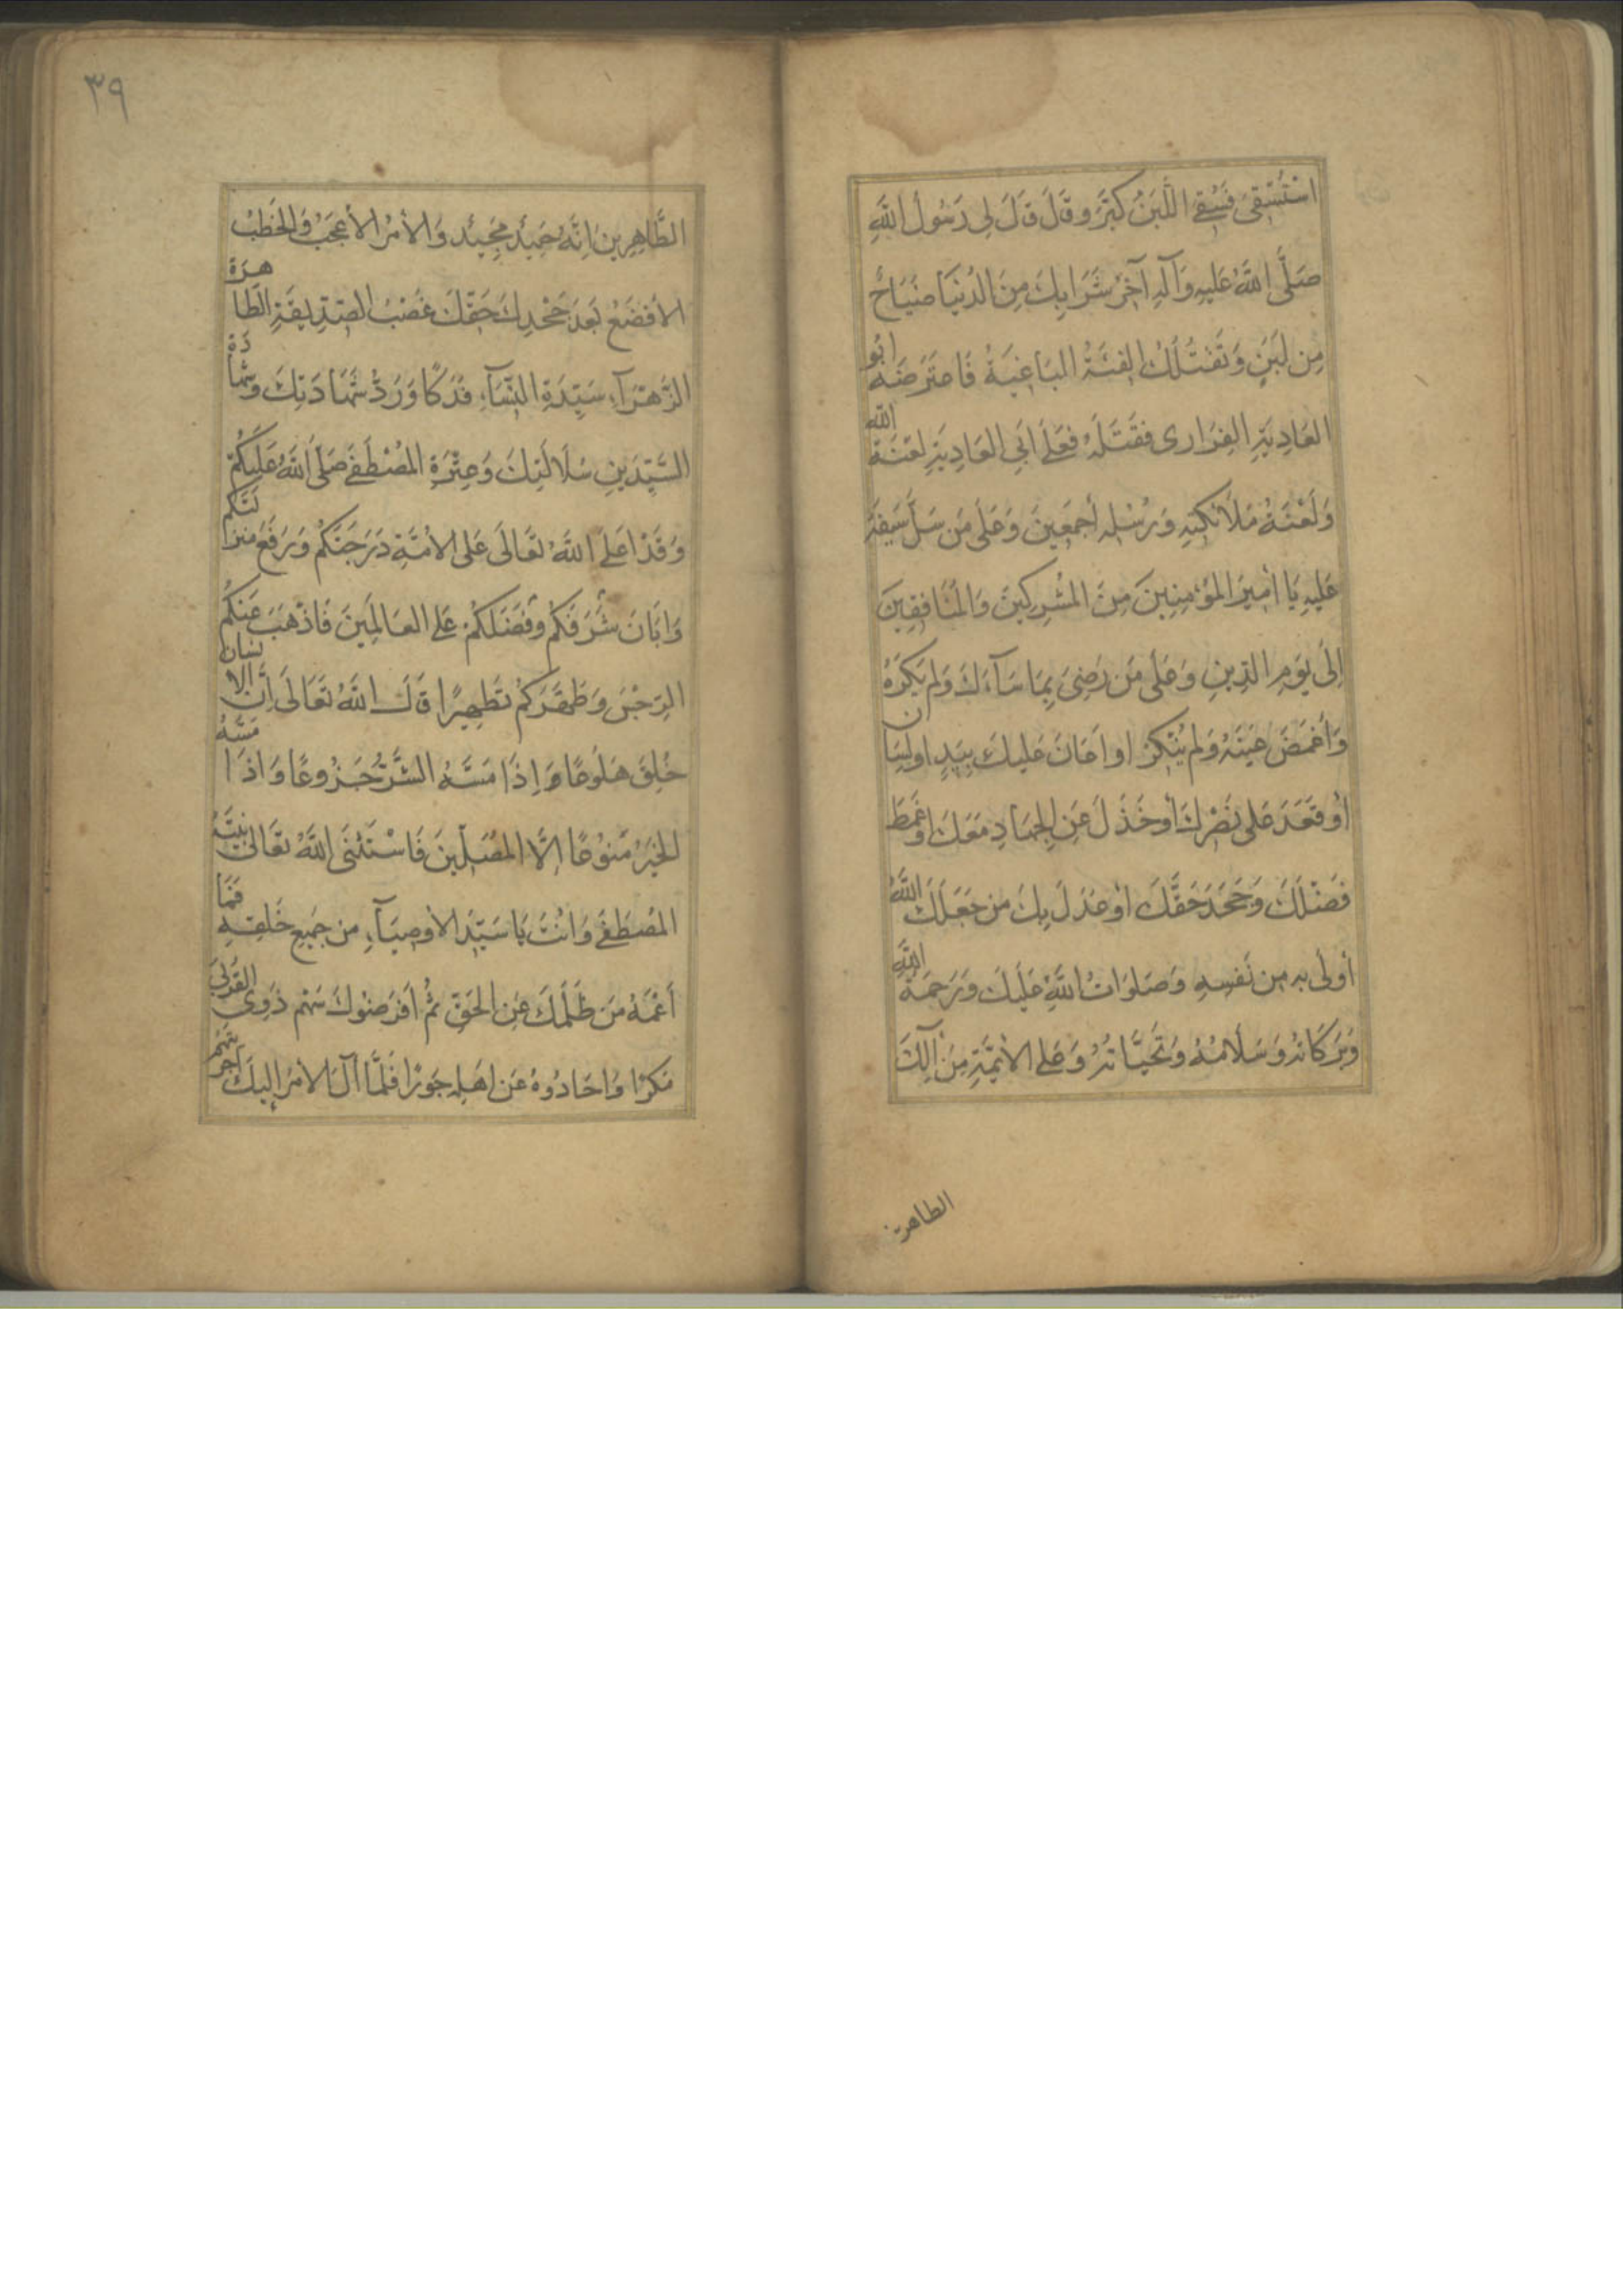 اسْتُسْقِىَ فَسُقِىَ اللَّبَنُ كَبَّرَ وقَالَ قَالَ لِى رَسُولُ اللَّهِ
صَلَّى اللَّهُ عَلَيهِ وَآلِهِ آخِرُ شَرَابِكَ مِنَ الدُنْيَا ضَيَاحٌ
مِن لَبَنٍ وَتَقْتُلُكَ الفِئَةُ البَاغِيَةُ فَاعتَرَضَهُ ابُو
العَادِيَةِ الفِزَارى فَقَتَلَهُ فَعَلَى ابِي العَادِيَةِ لَعْنَةُ اللَّهِ
وَلَعْنَةُ مَلَائِكَتِهِ وَرُسُلِهِ أجمَعِينَ وَعَلَى مَن سَلَّ سَيفَهُ
عَلَيهِ يَا أمِيرَ المُؤمِنِينَ مِنَ المُشْرِكِينَ وَالمُنَافِقِينَ
إِلَى يَومِ الدِينِ وَعَلَى مَن رَضِىَ بِمَا سَآءَكَ وَلَم يَكرَهْهُ
وَأغمَضَ عَينَهُ وَلَم يُنْكِرْ او اعَانَ عَلَيكَ بِيَدٍ او لِسَانٍ
أو قَعَدَ عَلى نَصْرِكَ أو خَذَلَ عَنِ الجِهَادِ مَعَكَ او غَمَطَ
فَضْلَكَ وَجَحَدَ حَقَّكَ أو عَدَلَ بِكَ مَن جَعَلَكَ اللَّهُ
أولى بِهِ مِن نَفسِهِ وَصَلَوَاتُ اللَّهِ عَلَيكَ وَرَحمَةُ اللَّهِ
وَبَرَكَاتُهُ وَسَلَامُهُ وَتَحِيَّاتُهُ وَعَلى الأئِمَّةِ مِنْ آلِكَ
الطاهرين
٣٩
الطَّاهِرِينَ اِنَّهُ حَمِيدٌ مَجِيدٌ وَالأمْرُ الأعجَبُ وَالخَطْبُ
الأفضَعُ بَعدَ جَحْدِكَ حَقَّكَ غَصْبُ الصِّدِيقَةِ الطَّاهِرَةِ
الزَّهْرَآءِ سَيِّدَةِ النِّسَآءِ فَدَكًا وَرَدُّ شَهَادَتِكَ وَشَهَادَةُ
السَّيِّدَينِ سُلَالَتِكَ وَعِتْرَةِ المُصْطَفَى صَلَّى اللَّهُ عَلَيكُمْ
وَقَدْ اعلَى اللَّهُ تَعَالَى عَلى الأُمَّةِ دَرَجَتَكُم وَرَفَعَ مَنزِلَتَكُم
وَابَانَ شَرَفَكُم وفَضَّلَكُمْ عَلى العَالَمِينَ فَاذْهَبَ عَنكُمُ
الرِجْسَ وَطَهَّرَكُمْ تَطهِيرًا قَالَ اللَّهُ تَعَالَى اِنَّ الانسَانَ
خُلِقَ هَلُوعًا وَاِذَا مَسَّهُ الشَّرُّ جَزُوعًا وَاذَا مَسَّهُ
الخَيرُ مَنُوعًا إلَّا المُصَلِّينَ فَاسْتَثنَى اللَّهُ تَعَالى نَبِيَّهُ
المُصْطَفَى وَانْتَ يَا سَيِّدَ الأوصِيَآءِ مِن جَمِيعِ خَلقِهِ فَمَا
أعْمَهَ مَن ظَلَمَكَ عَنِ الحَقِّ ثُم افرَضُوكَ سَهم ذَوِى القُربَى
مَكرًا وَاحَادُوهُ عَن اهلِهِ جَورًا فَلَمَّا آلَ الأمرُ إليكَ اجرَيتَهُم